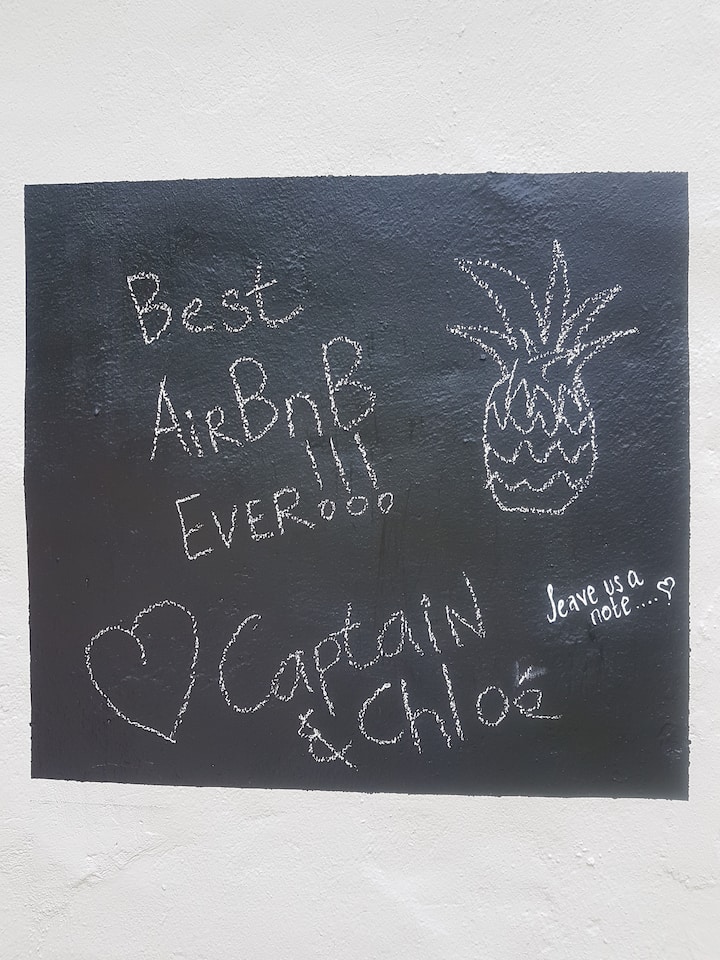 Best
AirBnB
EVER!!!
Captain
& Chloe
leave us a
note....